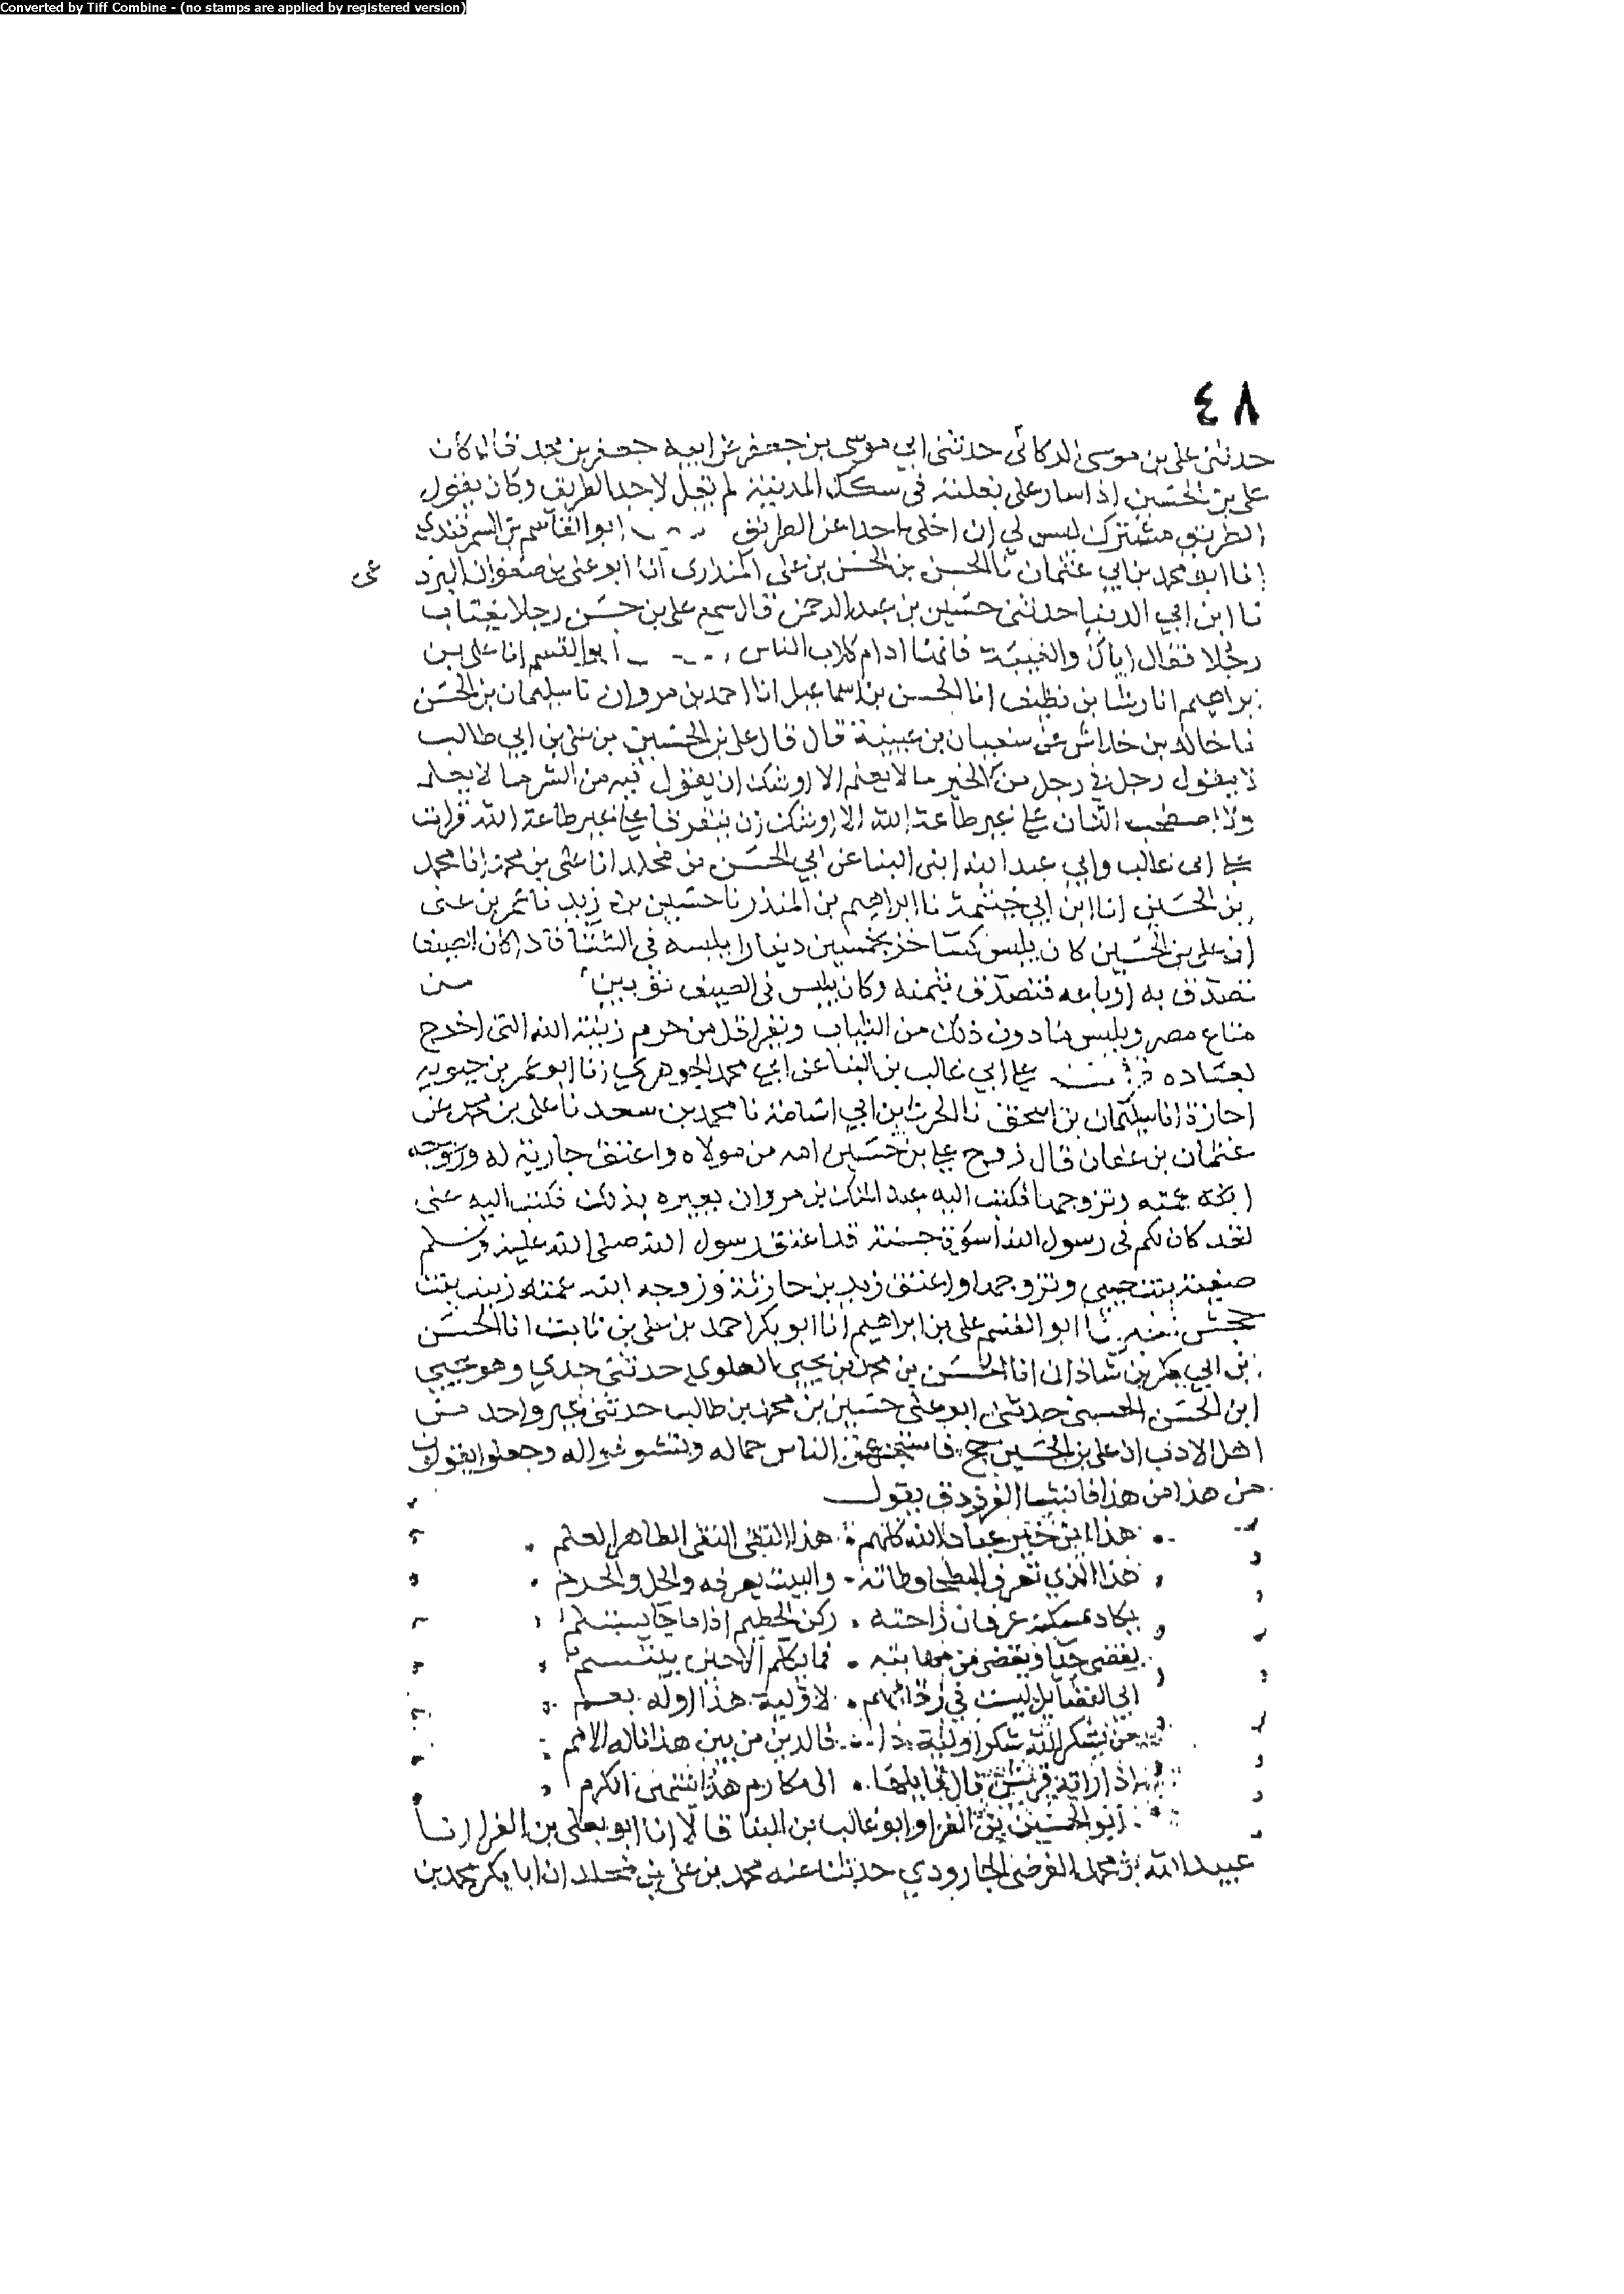 Converted by Tiff Combine - (no stamps are applied by registered version)
٤٨
حدثني علي بن موسى حدثني ابي موسى بن جعفر عن ابيه جعفر بن محمد قال كان
علي بن الحسين اذا سار على بغلته في سكك المدينة لم يقل لاحد الطريق وكان يقول
الطريق مشترك ليس لي ان انحي احدا عن الطريق ابو القاسم بن السمرقندي
انا محمد بن ابي عثمان نا الحسن بن الحسن بن علي المنذرى انا ابو علي بن صفوان البرذعي
نا ابن ابي الدنيا حدثني حسين بن عبد الرحمن قال سمع علي بن حسين رجلا يغتاب
رجلا فقال اياك والغيبة فانها ادام كلاب الناس ابو القسم انا علي بن
ابراهيم انا رشا بن نظيف انا الحسن بن اسماعيل انا احمد بن مروان نا سليمان بن الحسن
نا خالد بن خداش عن سفيان بن عيينة قال قال علي بن الحسين بن علي بن ابي طالب
لا يقول رجل في رجل من الخير ما لا يعلم الا اوشك ان يقول فيه من الشر ما لا يعلم
ولا اصطحب اثنان على غير طاعة الله الا اوشك ان يتفرقا على غير طاعة الله قرات
على ابي غالب وابي عبد الله ابني البنا عن ابي الحسن بن مخلد انا علي بن محمد انا محمد
بن الحسين انا ابن ابي خيثمة نا ابراهيم بن المنذر نا حسين بن زيد نا عمر بن علي
ان علي بن الحسين كان يلبس كسا خز بخمسين دينارا يلبسه في الشتا فاذا كان الصيف
تصدق به او باعه فتصدق بثمنه وكان يلبس في الصيف ثوبين من
متاع مصر ويلبس ما دون ذلك من الثياب ويقرا قل من حرم زينة الله التي اخرج
لعباده قرات على ابي غالب بن البنا عن ابي محمد الجوهري انا ابو عمر بن حيويه
اجازة انا سليمان بن اسحق نا الحرث بن ابي اسامة نا محمد بن سعد نا علي بن محمد عن
عثمان بن عثمان قال زوج علي بن حسين امه من مولاه واعتق جارية له وتزوجها
وتزوجها فكتب اليه عبد الملك بن مروان يعيره بذلك فكتب اليه علي
لقد كان لكم في رسول الله اسوة حسنة قد اعتق رسول الله صلى الله عليه وسلم
صفية بنت حيي وتزوجها واعتق زيد بن حارثة وزوجه ابنة عمته زينب بنت
جحش نا ابو القسم علي بن ابراهيم انا ابو بكر احمد بن علي بن ثابت انا الحسن
بن ابي بكر بن شاذان انا الحسن بن محمد بن يحيى العلوي حدثني جدي وهو يحيى
ابن الحسن الحسيني حدثني ابو علي حسين بن محمد بن طالب حدثني غير واحد من
اهل الادب ان علي بن الحسين حج فاستجهر الناس جماله وتشوفوا له وجعلوا يقولون
من هذا من هذا فانشا الفرزدق يقول
هذا ابن خير عباد الله كلهم هذا التقي النقي الطاهر العلم
هذا الذي تعرف البطحا وطاته والبيت يعرفه والحل والحرم
يكاد يمسكه عرفان راحته ركن الحطيم اذا ما جا يستلم
يغضي حيا ويغضى من مهابته فما يكلم الا حين يبتسم
اي القبائل ليست في رقابهم لاولية هذا اوله نعم
من يشكر الله يشكر اولية ذا فالدين من بيت هذا ناله الامم
اذا راته قريش قال قايلها الى مكارم هذا ينتهي الكرم
ابو الحسين بن الفرا وابو غالب بن البنا قالا انا ابو يعلى بن الفرا انا
عبيد الله بن محمد الفرضي الجارودي حدثنا عنه محمد بن علي بن مخلد ان ابا بكر محمد بن